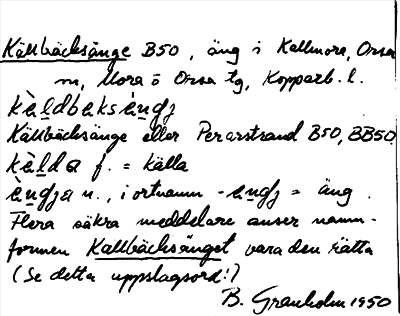 Källbäcksänge B50, äng i Kallmora, Orsa
m, Mora o Orsa tg, Kopparb. l.
kèldbaksèŋdʒ
Källbäcksänge eller Perarstrand B50, BB50
kèlda f. = källa
èŋdʒa n., i ortnamn -eŋdʒ = äng.
Flera säkra meddelare anser namn-
formen Kallbäcksänget vara den rätta
(Se detta uppslagsord!)
B. Granholm 1950